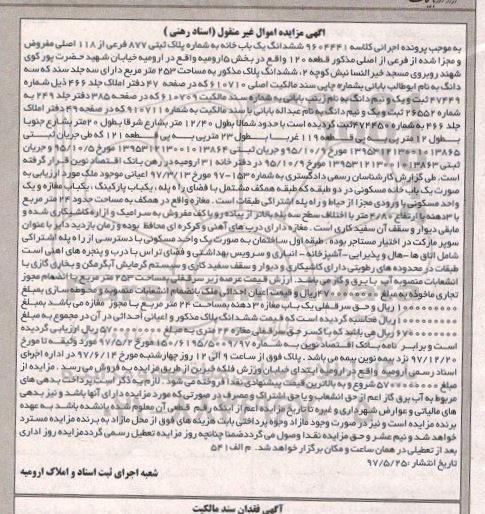 آگهی مزایده اموال غیر منقول (اسناد رهنی)
به موجب پرونده اجرائی کلاسه ۹۶۰۴۴۴۱ ششدانگ یک باب خانه به شماره پلاک ثبتی ۸۷۷ فرعی از ۱۱۸ اصلی مفروض
و مجزا شده از فرعی از اصلی مذکور قطعه ۱۲۰ واقع در بخش ۵ ارومیه واقع در ارومیه خیابان شهید حضرت پور کوی
شهند روبروی مسجد خیر النسا نبش کوچه ۲، ششدانگ پلاک مذکور به مساحت ۲۵۳ متر مربع دارای سه جلد سند که سه
دانگ به نام ابوطالب بابائی بشماره چاپی سند مالکیت اصلی ۶۱۰۷۱۰ که در صفحه ۴۷ دفتر املاک جلد ۴۶۶ ذیل شماره
۴۷۴۴۹ ثبت و یک و نیم دانگ به نام زینب بابائی به شماره سند مالکیت ۶۱۰۷۰۹ که در صفحه ۳۸۵ دفتر جلد ۲۴۹ به
شماره ۲۶۵۵۲ ثبت و یک و نیم دانگ به نام عبداله بابائی با سند مالکیت به شماره ۹۱۰۷۱۱ که در صفحه ۴۹ دفتر املاک
جلد ۴۶۶ به شماره ۴۷۴۴۵۰ ثبت گردیده است با حدود شمالا بطول ۱۲/۴۰ متر بشارع شرقا بطول ۲۰ متر بشارع جنوبا
بطول ۱۲ متر پی به پی قطعه ۱۱۹ غربا بطول ۲۳ متر پی به پی قطعه ۱۲۱ که طی جریان ثبتی
۱۳۹۵۳۱۲۱۳۰۰۱۰۱۳۸۶۵ مورخ ۹۵/۱۰/۹ و جریان ثبتی ۱۳۹۵۳۱۲۱۳۰۰۱۰۱۳۸۶۴ مورخ ۹۵/۱۰/۵ و جریان
ثبتی ۱۳۹۵۳۱۲۱۳۰۰۱۰۱۳۸۶۳ مورخ ۹۵/۱۰/۹ در دفتر خانه ۳۱ ارومیه در رهن بانک اقتصاد نوین قرار گرفته
است. طی گزارش کارشناسان رسمی دادگستری به شماره ۱۵۳-۹۷ مورخ ۹۷/۳/۱۳ اعیانی موجود ملک مورد ارزیابی به
صورت یک باب خانه مسکونی در دو طبقه که طبقه همکف مشتمل با فضای راه پله، یکباب پارکینگ، یکباب مغازه و یک
واحد مسکونی با ورودی مجزا از حیاط و راه پله اشتراکی طبقات است. مغازه واقع در همکف به مساحت حدود ۲۴ متر مربع
با ۳ دهنه با ارتفاع ۴/۸۰ متر با اختلاف سطح سه پله بالاتر از پیاده رو با کف مفروش به سرامیک و ازاره کاشیکاری شده و
مابقی دیوار و سقف آن سفید کاری است. مغازه دارای درب های آهنی و کرکره ای محافظ بوده و زمان بازدید دایر با عنوان
سوپر مارکت در اختیار مستاجر بوده. طبقه اول ساختمان به صورت یک واحد مسکونی با دسترسی از راه پله اشتراکی
شامل اتاق ها-هال و پذیرایی-آشپزخانه-انباری و سرویس بهداشتی و فضای تراس با درب و پنجره های آهنی است
طبقات در محدوده های رطوبتی دارای کاشیکاری و دیوار و سقف سفید کاری و سیستم گرمایش آبگرمکن و بخاری گازی با
انشعابات منصوبه آب با برق و گاز می باشد. ارزش قیمت عرصه زیر سرقفلی به مساحت ۲۵۳ متر مربع با انضمام مجوز
تجاری ماخوذه به مبلغ ریال و قیمت اعیان احداثی ملک با انضام انشعابات منصوبه و محوطه سازی بمبلغ
ریال و حق سرقفلی یک باب مغازه ۳ دهنه بمساحت ۲۴ متر مربع با مجوز مغازه می باشد بمبلغ
ریال محاسبه گردیده است که قیمت ششدانگ پلاک مذکور و اعیانی احداثی در آن در مجموع به مبلغ
ریال می باشد که با کسر حق سرقفلی مغازه ۲۴ متری به مبلغ ریال ارزیابی گردیده
است و برابر نامه بانک اقتصاد نوین به شماره ۱۵۰/۶۱۹۵/۵۰۰۹/۹۷ مورخ ۹۷/۵/۲ مورد وثیقه تا مورخ
۹۷/۱۲/۲۰ نزد بیمه نوین بیمه می باشد. پلاک فوق از ساعت ۹ الی ۱۲ روز چهارشنبه مورخ ۹۷/۶/۱۴ در اداره اجرای
اسناد رسمی ارومیه واقع در ارومیه ابتدای خیابان ورزش فلکه خیرین از طریق مزایده به فروش می رسد. مزایده از
مبلغ شروع و به بالاترین قیمت پیشنهادی نقدا فروخته می شود. لازم به ذکر است پرداخت بدهی های
مربوط به آب برق گاز اعم از حق انشعاب و یا حق اشتراک و مصرف در صورتی که مورد مزایده دارای آنها باشد و نیز بدهی
های مالیاتی و عوارض شهرداری و غیره تا تاریخ مزایده اعم از اینکه رقم قطعی آن معلوم شده یا نشده باشد به عهده
برنده مزایده است و نیز در صورت وجود مازاد وجوه پرداختی بابت هزینه های فوق از محل مازاد به برنده مزایده مسترد
خواهد شد و نیم عشر و حق مزایده نقدا وصول می گردد ضمنا چنانچه روز مزایده تعطیل رسمی گردد مزایده روز اداری
بعد از تعطیلی در همان ساعت و مکان برگزار خواهد شد. م الف ۵۴۱
تاریخ انتشار: ۹۷/۵/۲۵
شعبه اجرای ثبت اسناد و املاک ارومیه
آگهی فقدان سند مالکیت